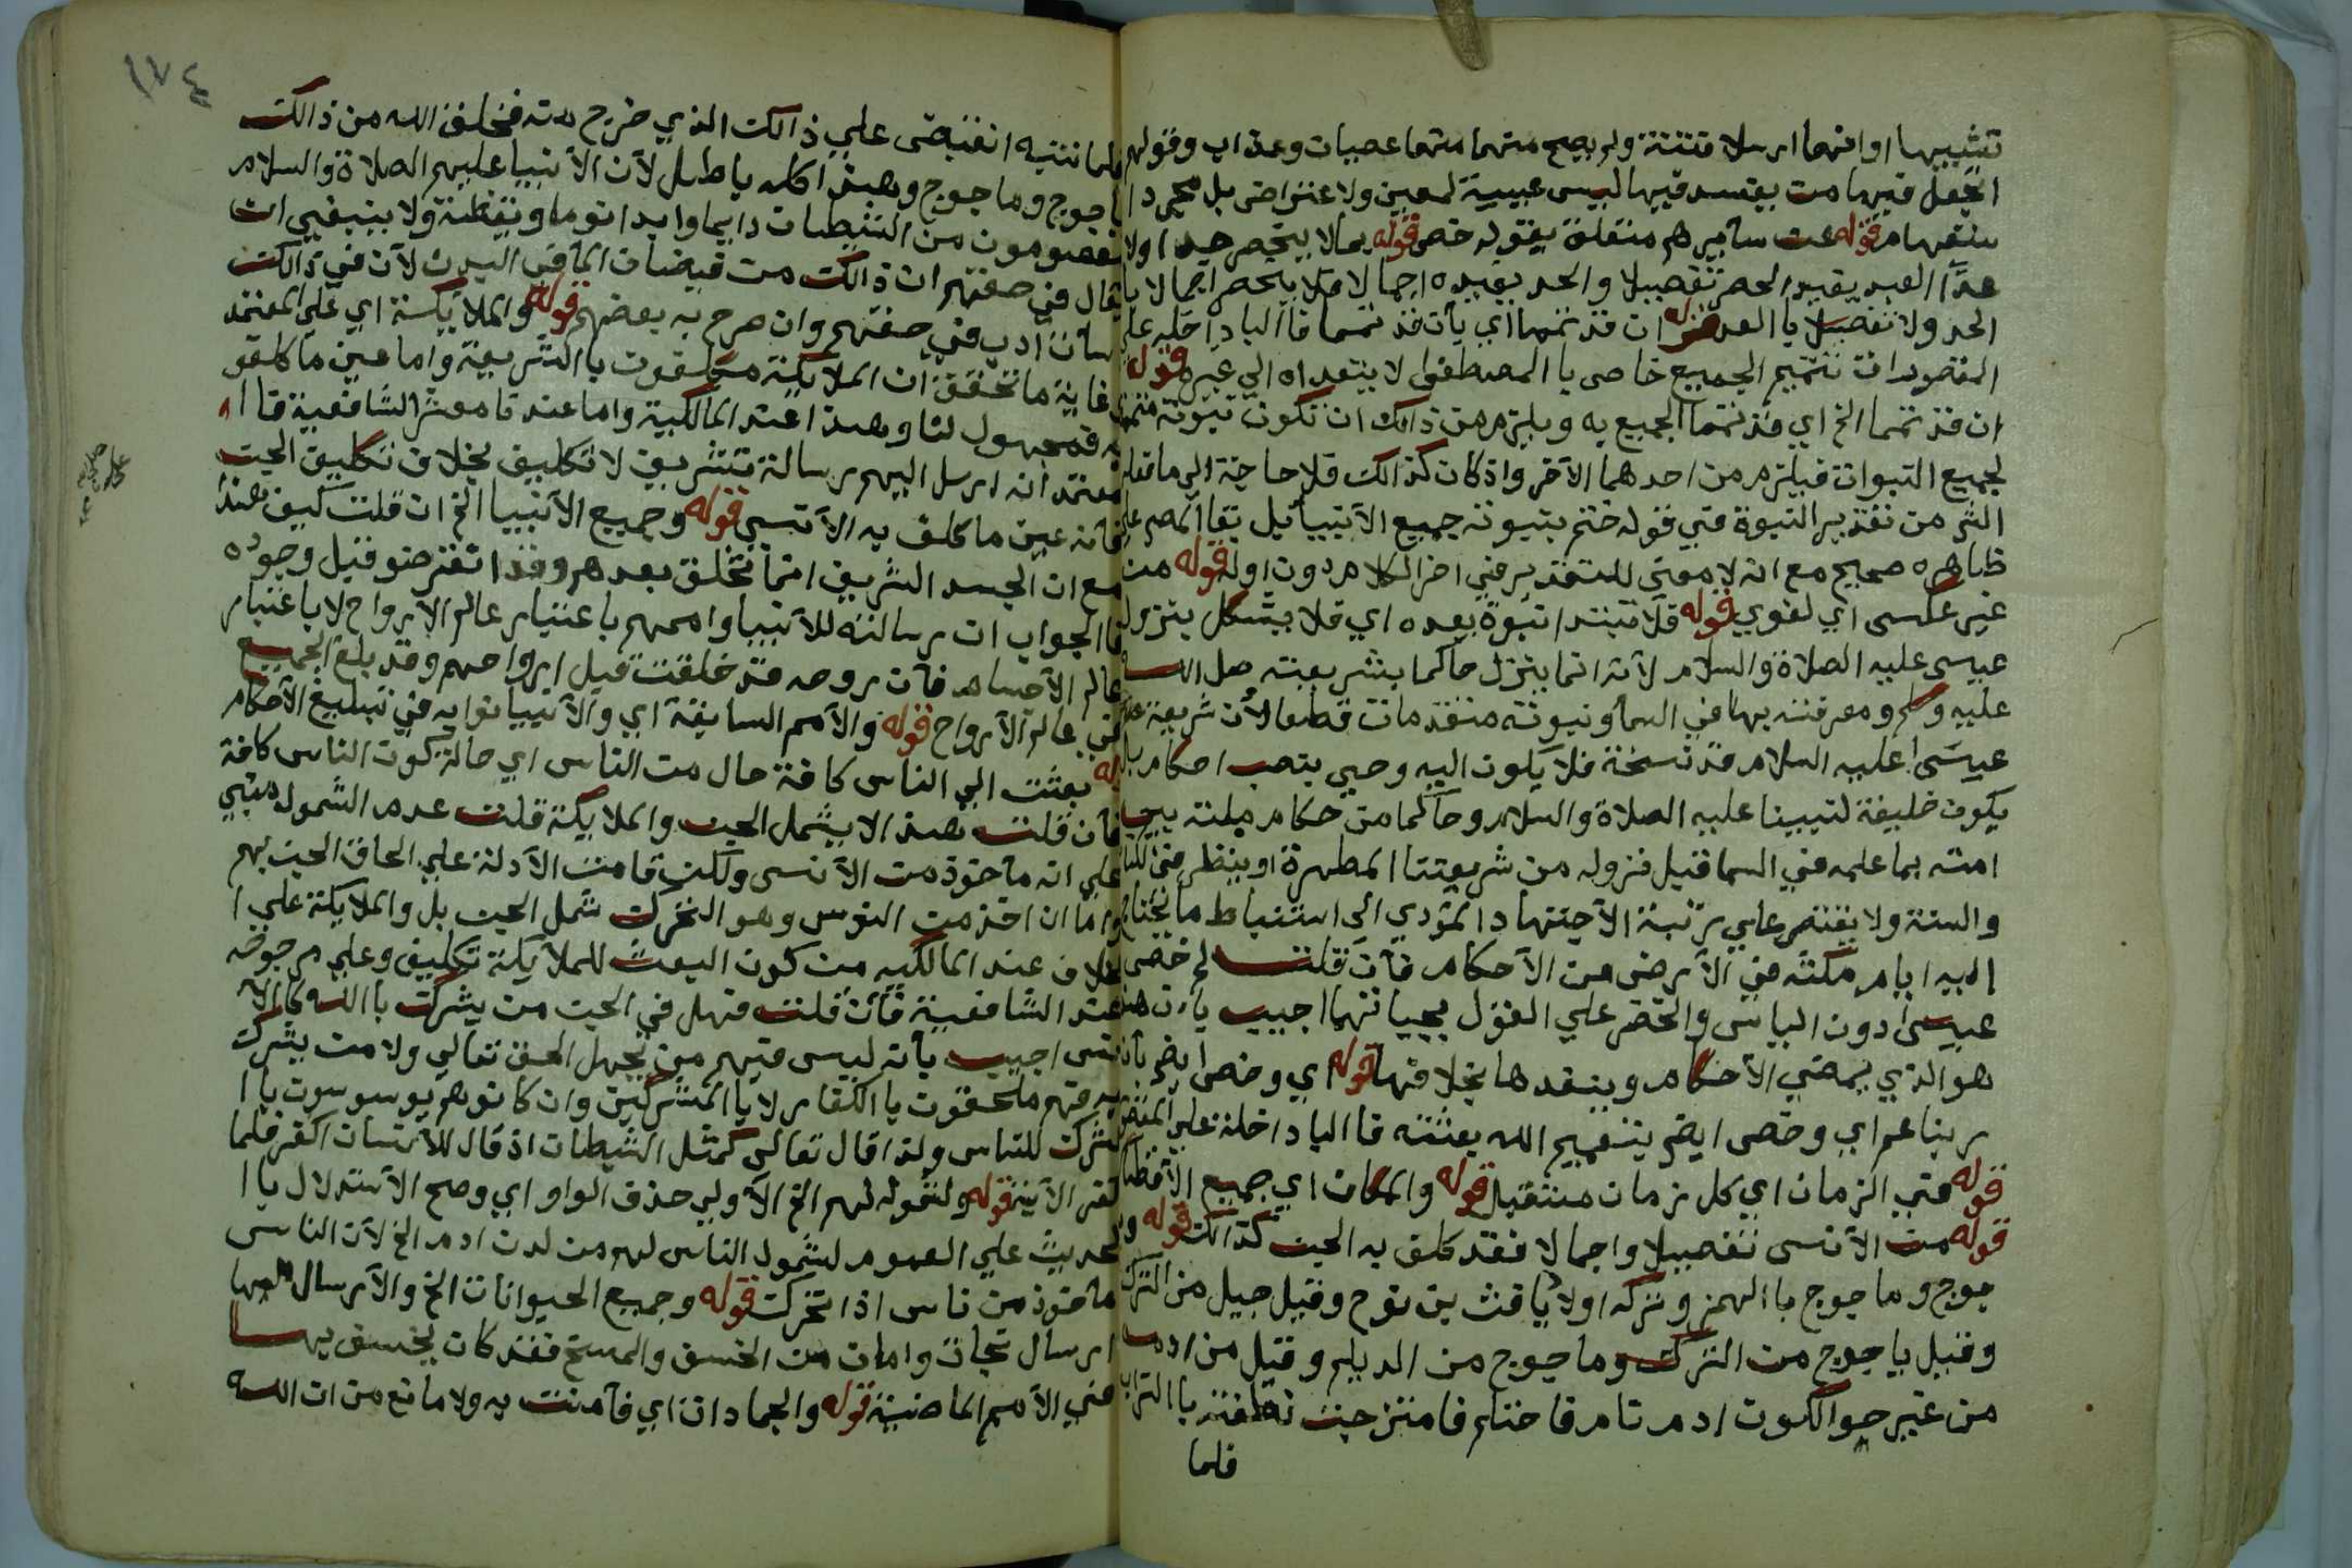 تشبيبها او انهما ارسلا فتنة ولم يصح منهما عصيان وعذاب وقولهم
اتجعل فيها من يفسد فيها ليس غيبة لمعين ولا اعتراض بل مجرد ا
ستفهام قوله عن سايرهم متعلق بقوله خص قوله بما لا ينحصر حدا ولا
عدا القيد يقيد الحصر تفصيلا والحد يفيده اجمالا فلا ينحصر اجمالا با
الحد ولا تفصيلا با العد قوله ان قد تمما اي بان قد تمما فا البا داخله علي
المقصود ان تتميم الجميع خاص با المصطفي لا يتعداه الي غيره قوله
ان قد تمما الخ اي قد تمما الجميع به ويلزم من ذالك ان تكون نبوته متممة
لجميع النبوات فيلزم من احدهما الآخر واذ كان كذالك فلا حاجة الي ما قاله
الش من تقدير النبوة في قوله ختم بنبوته جميع الآنبيا بل بقا المص علي
ظاهره صحيح مع انه لا معني للتقدير في اخر الكلام دون اوله قوله من
غير عكس اي لغوي قوله فلا تبتدا نبوة بعده اي فلا يشكل بنزول
عيسي عليه الصلاة والسلام لآنه انما ينزل حاكما بشريعته صل الله
عليه وسلم ومعرفته بها في السما ونبوته متقدمات قطعا لآن شريعة
عيسي عليه السلام قد نسخة فلا يكون اليه وحي بنصب احكام بل
يكون خليفة لنبينا عليه الصلاة والسلام وحاكما من حكام ملته بين
امته بما علمه في السما قبل نزوله من شريعتنا المطهرة او ينظر في الكتاب
والسنة ولا يقتصر علي رتبة الآجتهاد المؤدي الي استنباط ما يحتاج
اليه ايام مكثه في الآرض من الآحكام فآن قلت لم خص
عيسي دون الياس والخضر علي القول بحياتهما اجيب بان هذا
هو الذي يمضي الآحكام وينفدها بخلافها قوله اي وخص ايض بان
ربنا عم اي وخص ايض بتعميم الله بعثته فا البا داخلة علي المقصور
قوله في الزمان اي كل زمان مستقبل قوله والمكان اي جميع الآقطار
قوله من الآنس تفصيلا واجمالا فقد كلف به الجن كذالك قوله و
جوج وماجوج با الهمز وتركه اولاد يافث بن نوح وقيل جيل من الترك
وقيل ياجوج من الترك وماجوج من الديلم وقيل من ادم
من غير حوا لكون ادم نام فاحتلم فامتزجت نطفته با التراب
فلما
١٧٤
فلما انتبه انقبض علي ذالك الذي خرج منه فخلق الله من ذالك
ياجوج وماجوج وهذا كله باطل لآن الآنبيا عليهم الصلاة والسلام
معصومون من الشيطان دايما وابدا نوما ويقظة ولا ينبغي ان
يقال في صفتهم ان ذالك من فيضان الما في البدن لآن في ذالك
اسآت ادب في صفتهم وان صرح به بعضهم قوله والملايكة اي علي المعتمد
وغاية ما تحقق ان الملايكة مكلفون با الشريعة واما عين ما كلفو
به فمجهول لنا وهذا عند المالكية واما عندنا معشر الشافعية فا ا
معتمد انه ارسل اليهم رسالة تشريف لا تكليف بخلاف تكليف الجن
فانه عين ما كلف به الآنس قوله وجميع الآنبيا الخ ان قلت كيف هذا
مع ان الجسد الشريف انما تخلق بعدهم وقد انقرضو قبل وجوده
فا الجواب ان رسالته للآنبيا واممهم باعتبار عالم الآرواح لا باعتبار
عالم الآجسام فآن روحه قد خلقت قبل ارواحهم وقد بلغ الجميع
في عالم الآرواح قوله والآمم السابقة اي والآنبيا نوابه في تبليغ الآحكام
له بعثت الي الناس كافة حال من الناس اي حالة كون الناس كافة
فآن قلت هذا لا يشمل الجن والملايكة قلت عدم الشمول مبني
علي انه ماخوذ من الآنس ولكن قامت الآدلة علي الحاق الجن بهم
واما ان اخذ من النوس وهو التحرك شمل الجن بل والملايكة علي ا
لخلاف عند المالكيه من كون البعث للملآيكة تكليف وعلي مرجوحه
عند الشافعية فآن قلت فهل في الجن من يشرك با الله كا الآ
نس اجيب بآنه ليس فيهم من يجهل الحق تعالي ولا من يشرك
به فهم ملحقون با الكفار لا با المشركين وان كانو هم يوسوسون با ا
لشرك للناس ولذا قال تعالي كمثل الشيطان اذ قال للآنسان اكفر فلما
كفر الآية قوله ولشموله لهم الخ الآولي حذف الواو اي وصح الآستدلال با ا
لحديث علي العموم لشمول الناس لهم من لدن ادم الخ لآن الناس
ماخوذ من ناس اذا تحرك قوله وجميع الحيوانات الخ والآرسال لها
ارسال نجاة وامان من الخسف والمسخ فقد كان يخسف بها
في الآمم الماضية قوله والجمادات اي فآمنت به ولا مانع من ان الله